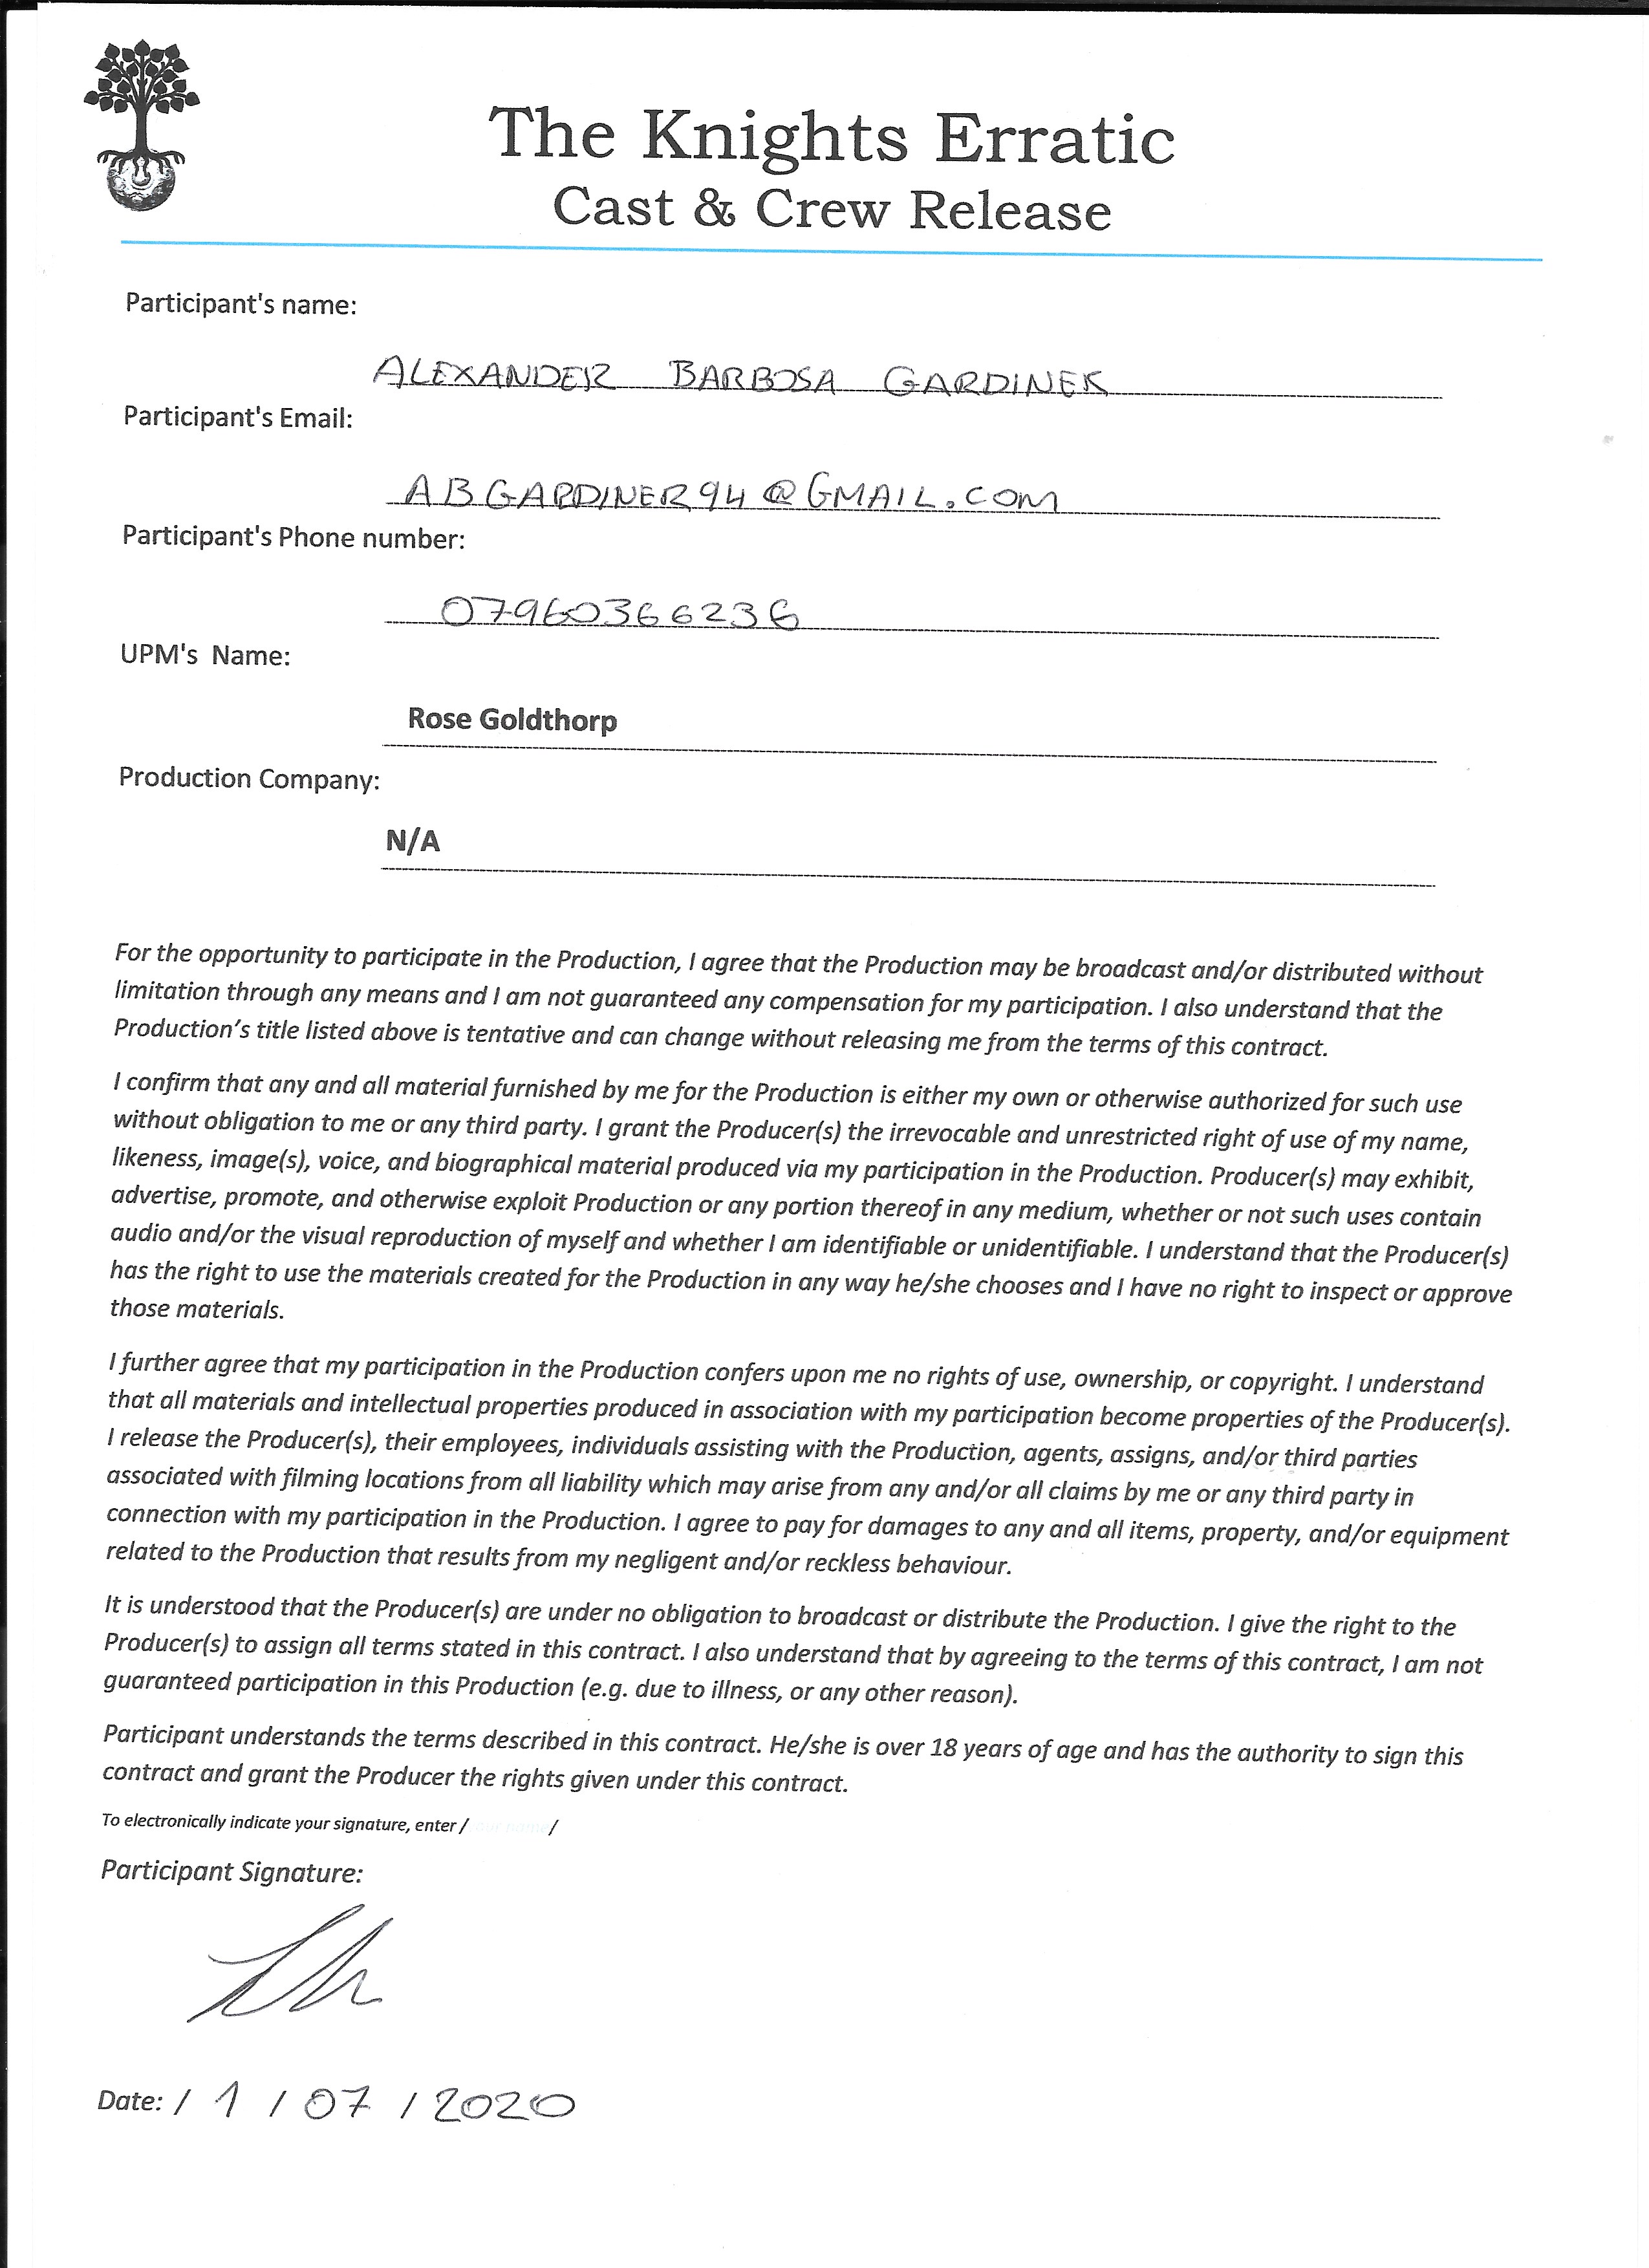 The Knights Erratic
Cast & Crew Release
Participant's name:
ALEXANDER BARBOSA GARDINER
Participant's Email:
ABGARDINER94@GMAIL.COM
Participant's Phone number:
07960366236
UPM's Name:
Rose Goldthorp
Production Company:
N/A
For the opportunity to participate in the Production, I agree that the Production may be broadcast and/or distributed without
limitation through any means and I am not guaranteed any compensation for my participation. I also understand that the
Production's title listed above is tentative and can change without releasing me from the terms of this contract.
I confirm that any and all material furnished by me for the Production is either my own or otherwise authorized for such use
without obligation to me or any third party. I grant the Producer(s) the irrevocable and unrestricted right of use of my name,
likeness, image(s), voice, and biographical material produced via my participation in the Production. Producer(s) may exhibit,
advertise, promote, and otherwise exploit Production or any portion thereof in any medium, whether or not such uses contain
audio and/or the visual reproduction of myself and whether I am identifiable or unidentifiable. I understand that the Producer(s)
has the right to use the materials created for the Production in any way he/she chooses and I have no right to inspect or approve
those materials.
I further agree that my participation in the Production confers upon me no rights of use, ownership, or copyright. I understand
that all materials and intellectual properties produced in association with my participation become properties of the Producer(s).
I release the Producer(s), their employees, individuals assisting with the Production, agents, assigns, and/or third parties
associated with filming locations from all liability which may arise from any and/or all claims by me or any third party in
connection with my participation in the Production. I agree to pay for damages to any and all items, property, and/or equipment
related to the Production that results from my negligent and/or reckless behaviour.
It is understood that the Producer(s) are under no obligation to broadcast or distribute the Production. I give the right to the
Producer(s) to assign all terms stated in this contract. I also understand that by agreeing to the terms of this contract, I am not
guaranteed participation in this Production (e.g. due to illness, or any other reason).
Participant understands the terms described in this contract. He/she is over 18 years of age and has the authority to sign this
contract and grant the Producer the rights given under this contract.
To electronically indicate your signature, enter / /
Participant Signature:
Date: / 1 / 07 / 2020